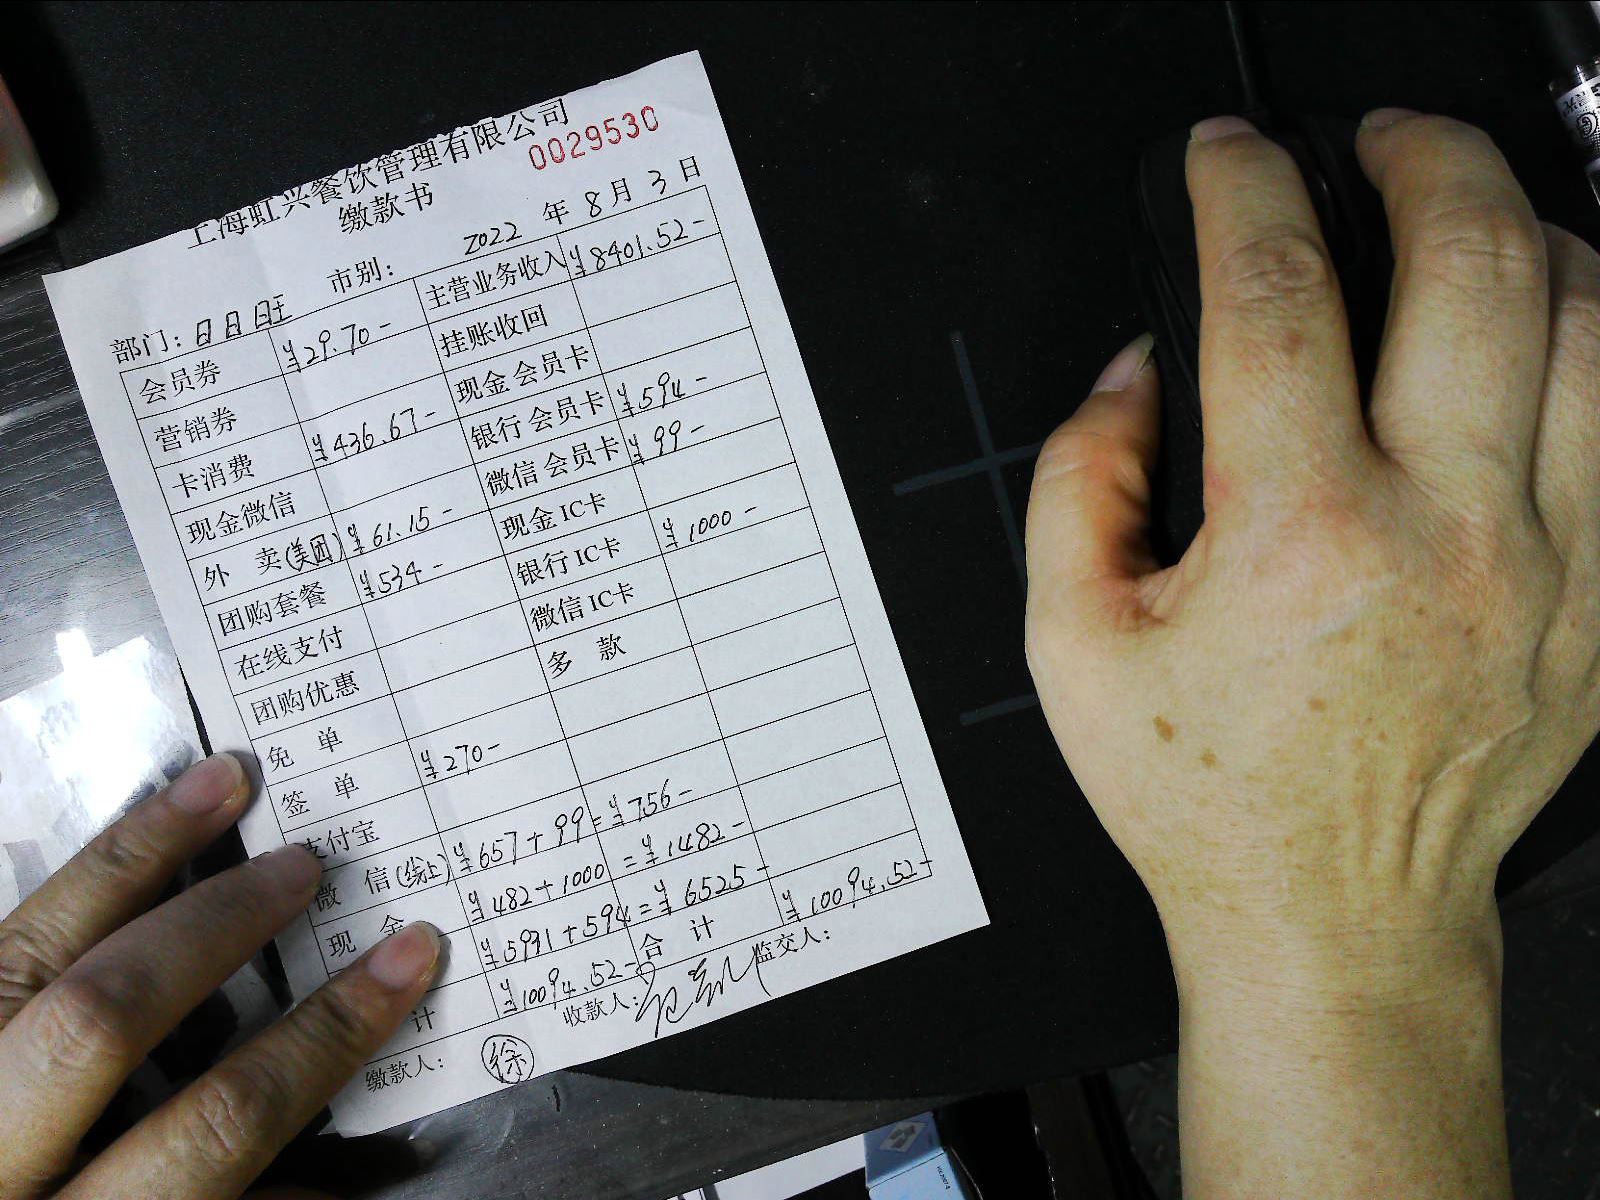 上海虹兴餐饮管理有限公司
缴款书
0029530
部门：日日旺 市别： 2022 年 8 月 3 日
会员券 ¥29.70- 主营业务收入 ¥8401.52-
营销券 挂账收回
卡消费 ¥436.67- 现金 会员卡
现金微信 银行 会员卡 ¥594-
外 卖(美团) ¥61.15- 微信 会员卡 ¥99-
团购套餐 ¥534- 现金 IC卡
在线支付 银行 IC卡 ¥1000-
团购优惠 微信 IC卡
免 单 多 款
签 单 ¥270-
支付宝
微 信(线上) ¥657+99=¥756-
现 金 ¥482+1000=¥1482-
¥5931+594=¥6525-
计 ¥10094.52- 合 计 ¥10094.52-
缴款人： 徐 收款人： 监交人：